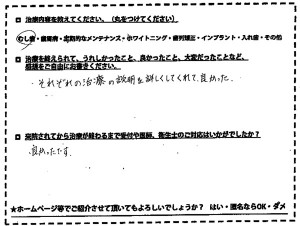 □ 治療内容を教えてください。(丸をつけてください)
むし歯・歯周病・定期的なメンテナンス・ホワイトニング・歯列矯正・インプラント・入れ歯・その他
□ 治療を終えられて、うれしかったこと、良かったこと、大変だったことなど、
感想をご自由にお書きください。
それぞれの治療の説明を詳しくしてくれて、良かった。
□ 来院されてから治療が終わるまで受付や医師、衛生士のご対応はいかがでしたか?
良かったです。
★ホームページ等でご紹介させて頂いてもよろしいでしょうか? はい・匿名ならOK・ダメ